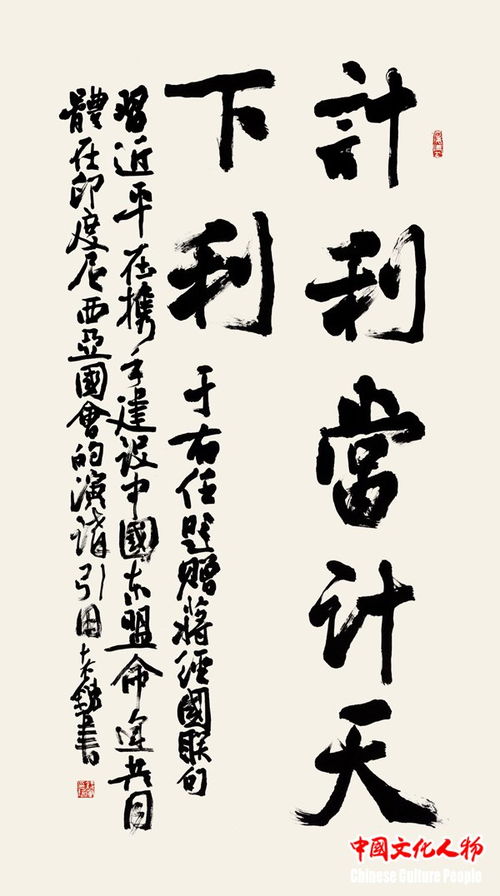 計利當计天
下利
于右任题赠蔣經國联句
習近平在携手建设中國东盟命运共同
體在印度尼西亞國會的演講引用 書
中國文化人物
Chinese Culture People